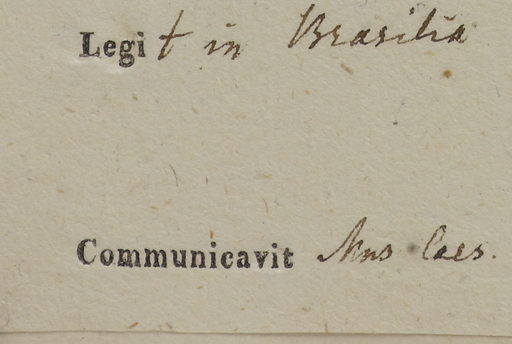 Legit in Brasilia
Communicavit Mus Caes.